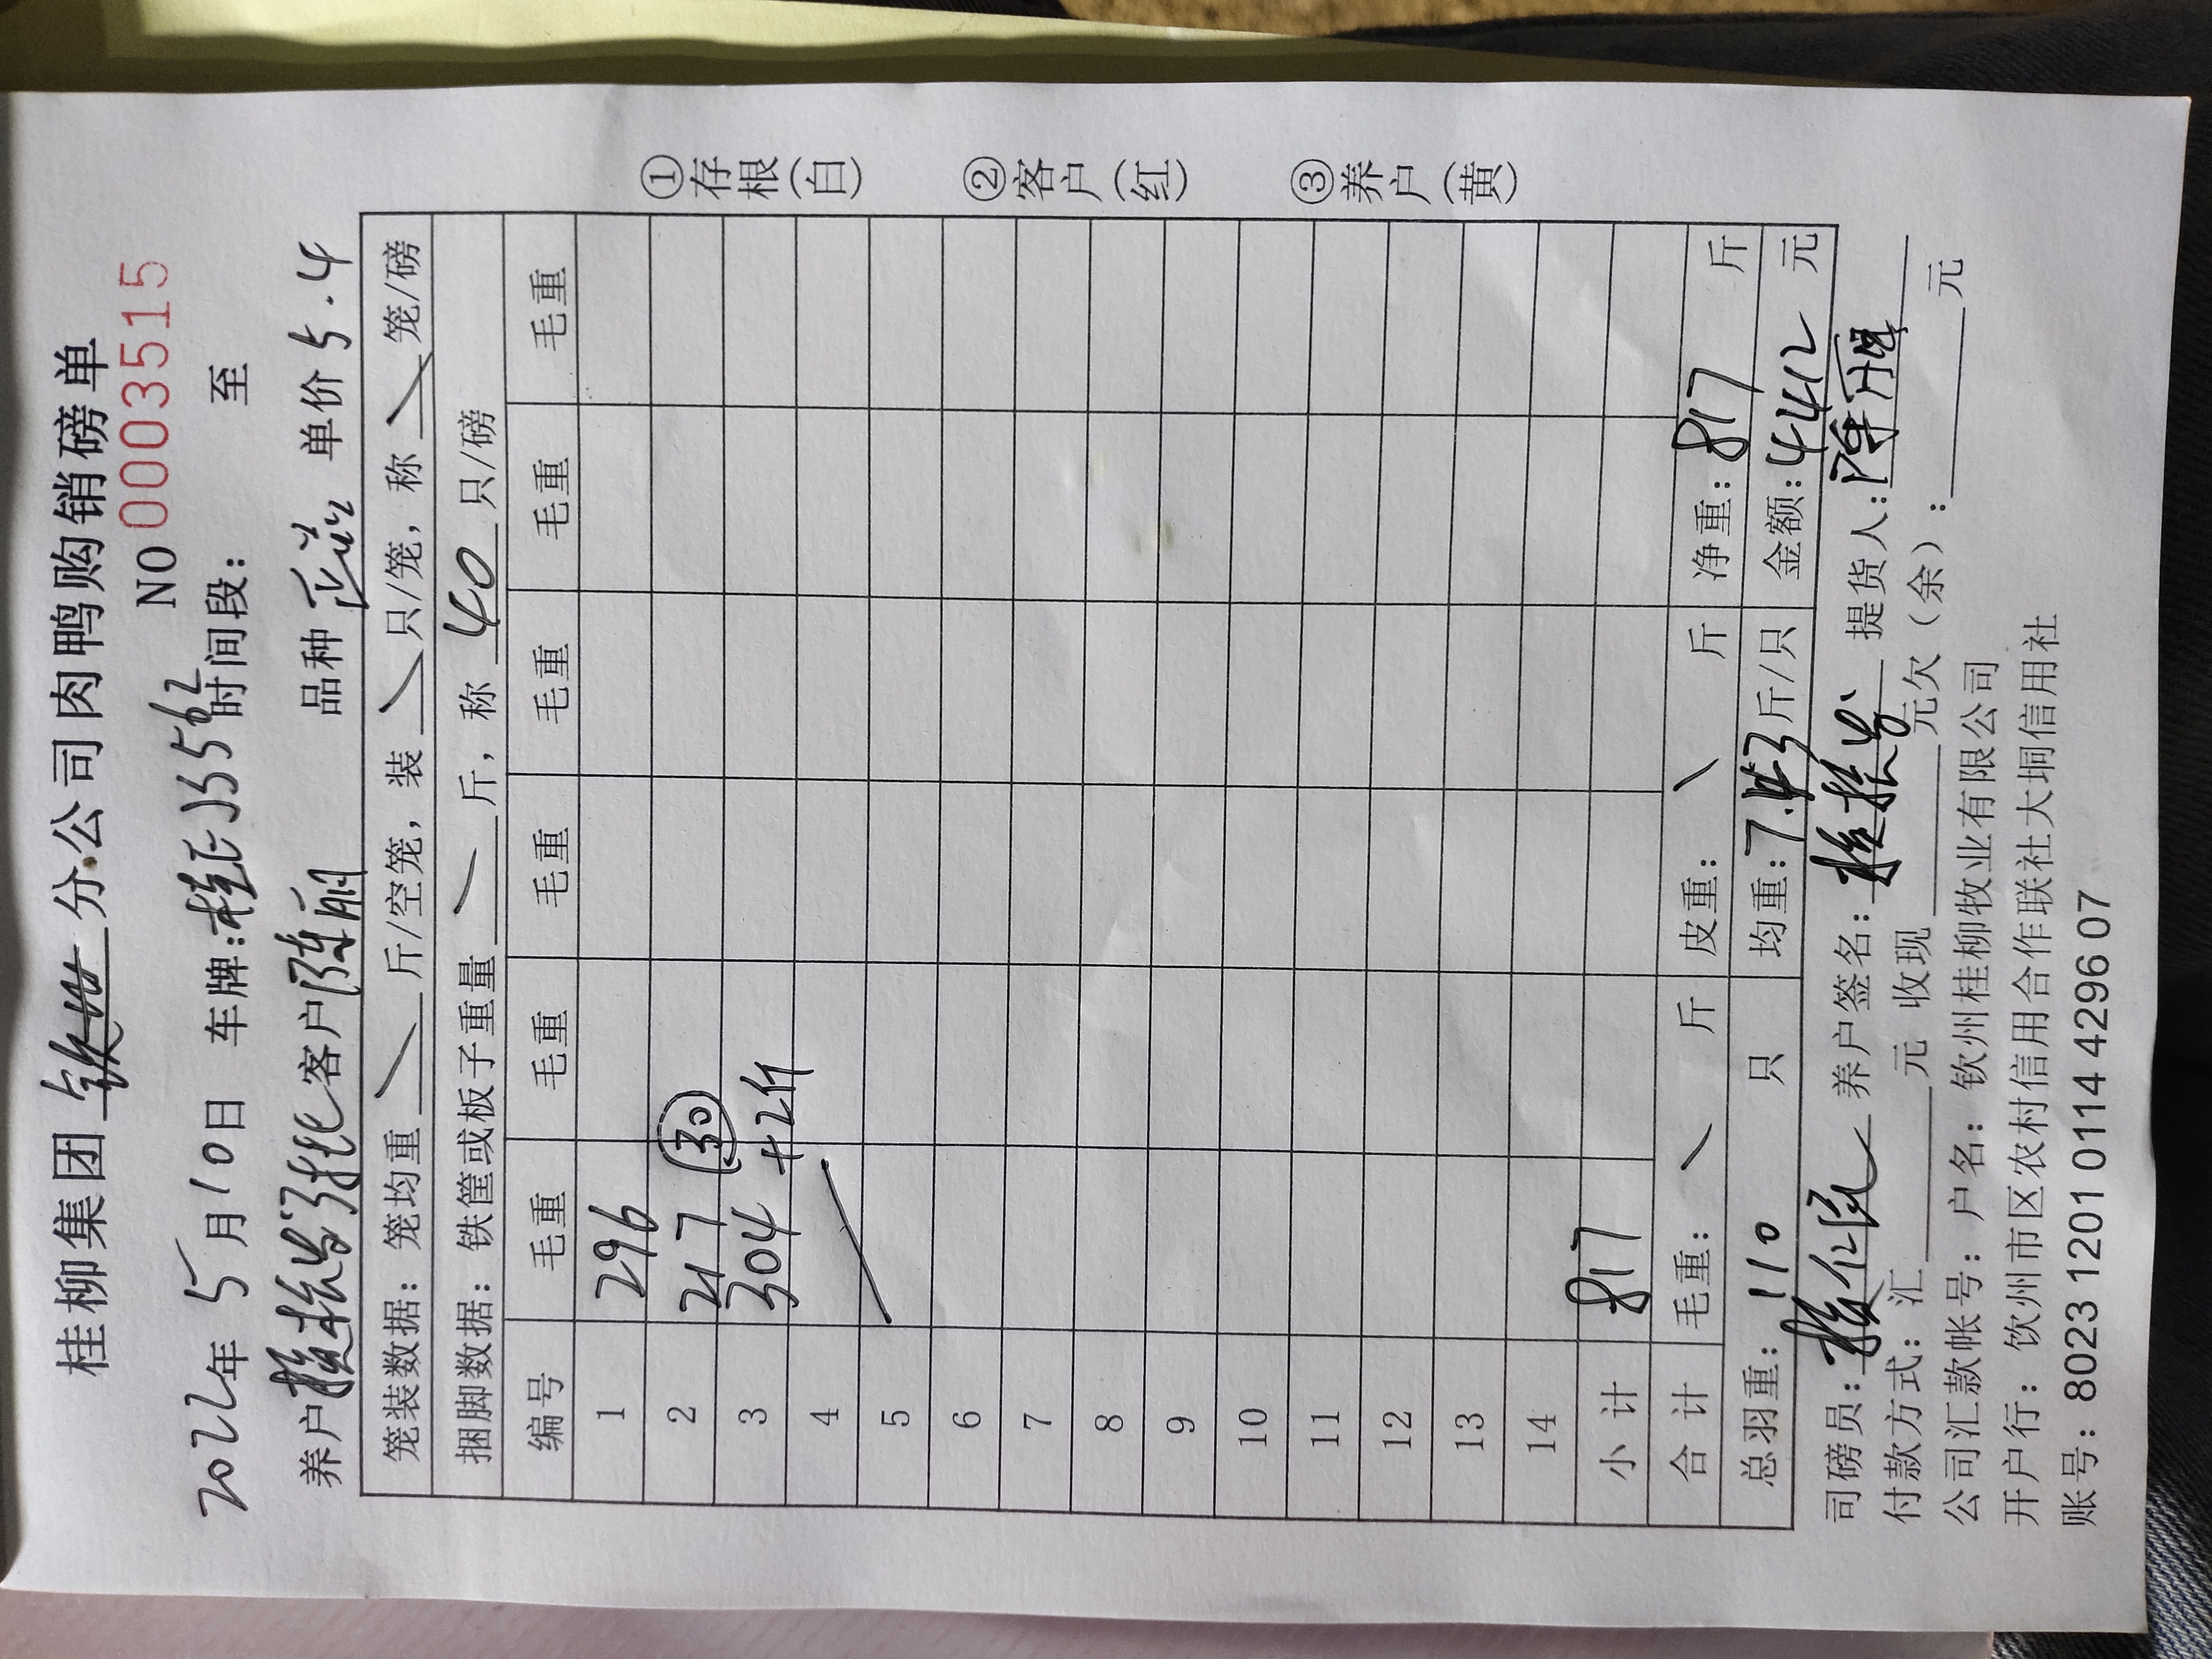 桂柳集团 钦州 分公司肉鸭购销磅单
NO 0003515
2022年 5月10日 车牌: 5562 时间段: 至
养户 客户 陈丽 品种 单价 5.4
笼装数据: 笼均重 斤/空笼, 装 只/笼, 称 笼/磅
捆脚数据: 铁筐或板子重量 斤, 称 40 只/磅
编号 毛重 毛重 毛重 毛重 毛重 毛重
1 296
2 217 30
3 304 +2斤
4
5
6
7
8
9
10
11
12
13
14
小计 817
合计 毛重: 斤 皮重: 斤 净重: 817 斤
总羽重: 110 只 均重: 7.43 斤/只 金额: 4412 元
司磅员: 养户签名: 提货人:
付款方式: 汇 元 收现 元欠(余): 元
公司汇款帐号: 户名: 钦州桂柳牧业有限公司
开户行: 饮州市区农村信用合作联社大垌信用社
账号: 8023 1201 0114 4296 07
①存根(白)
②客户(红)
③养户(黄)